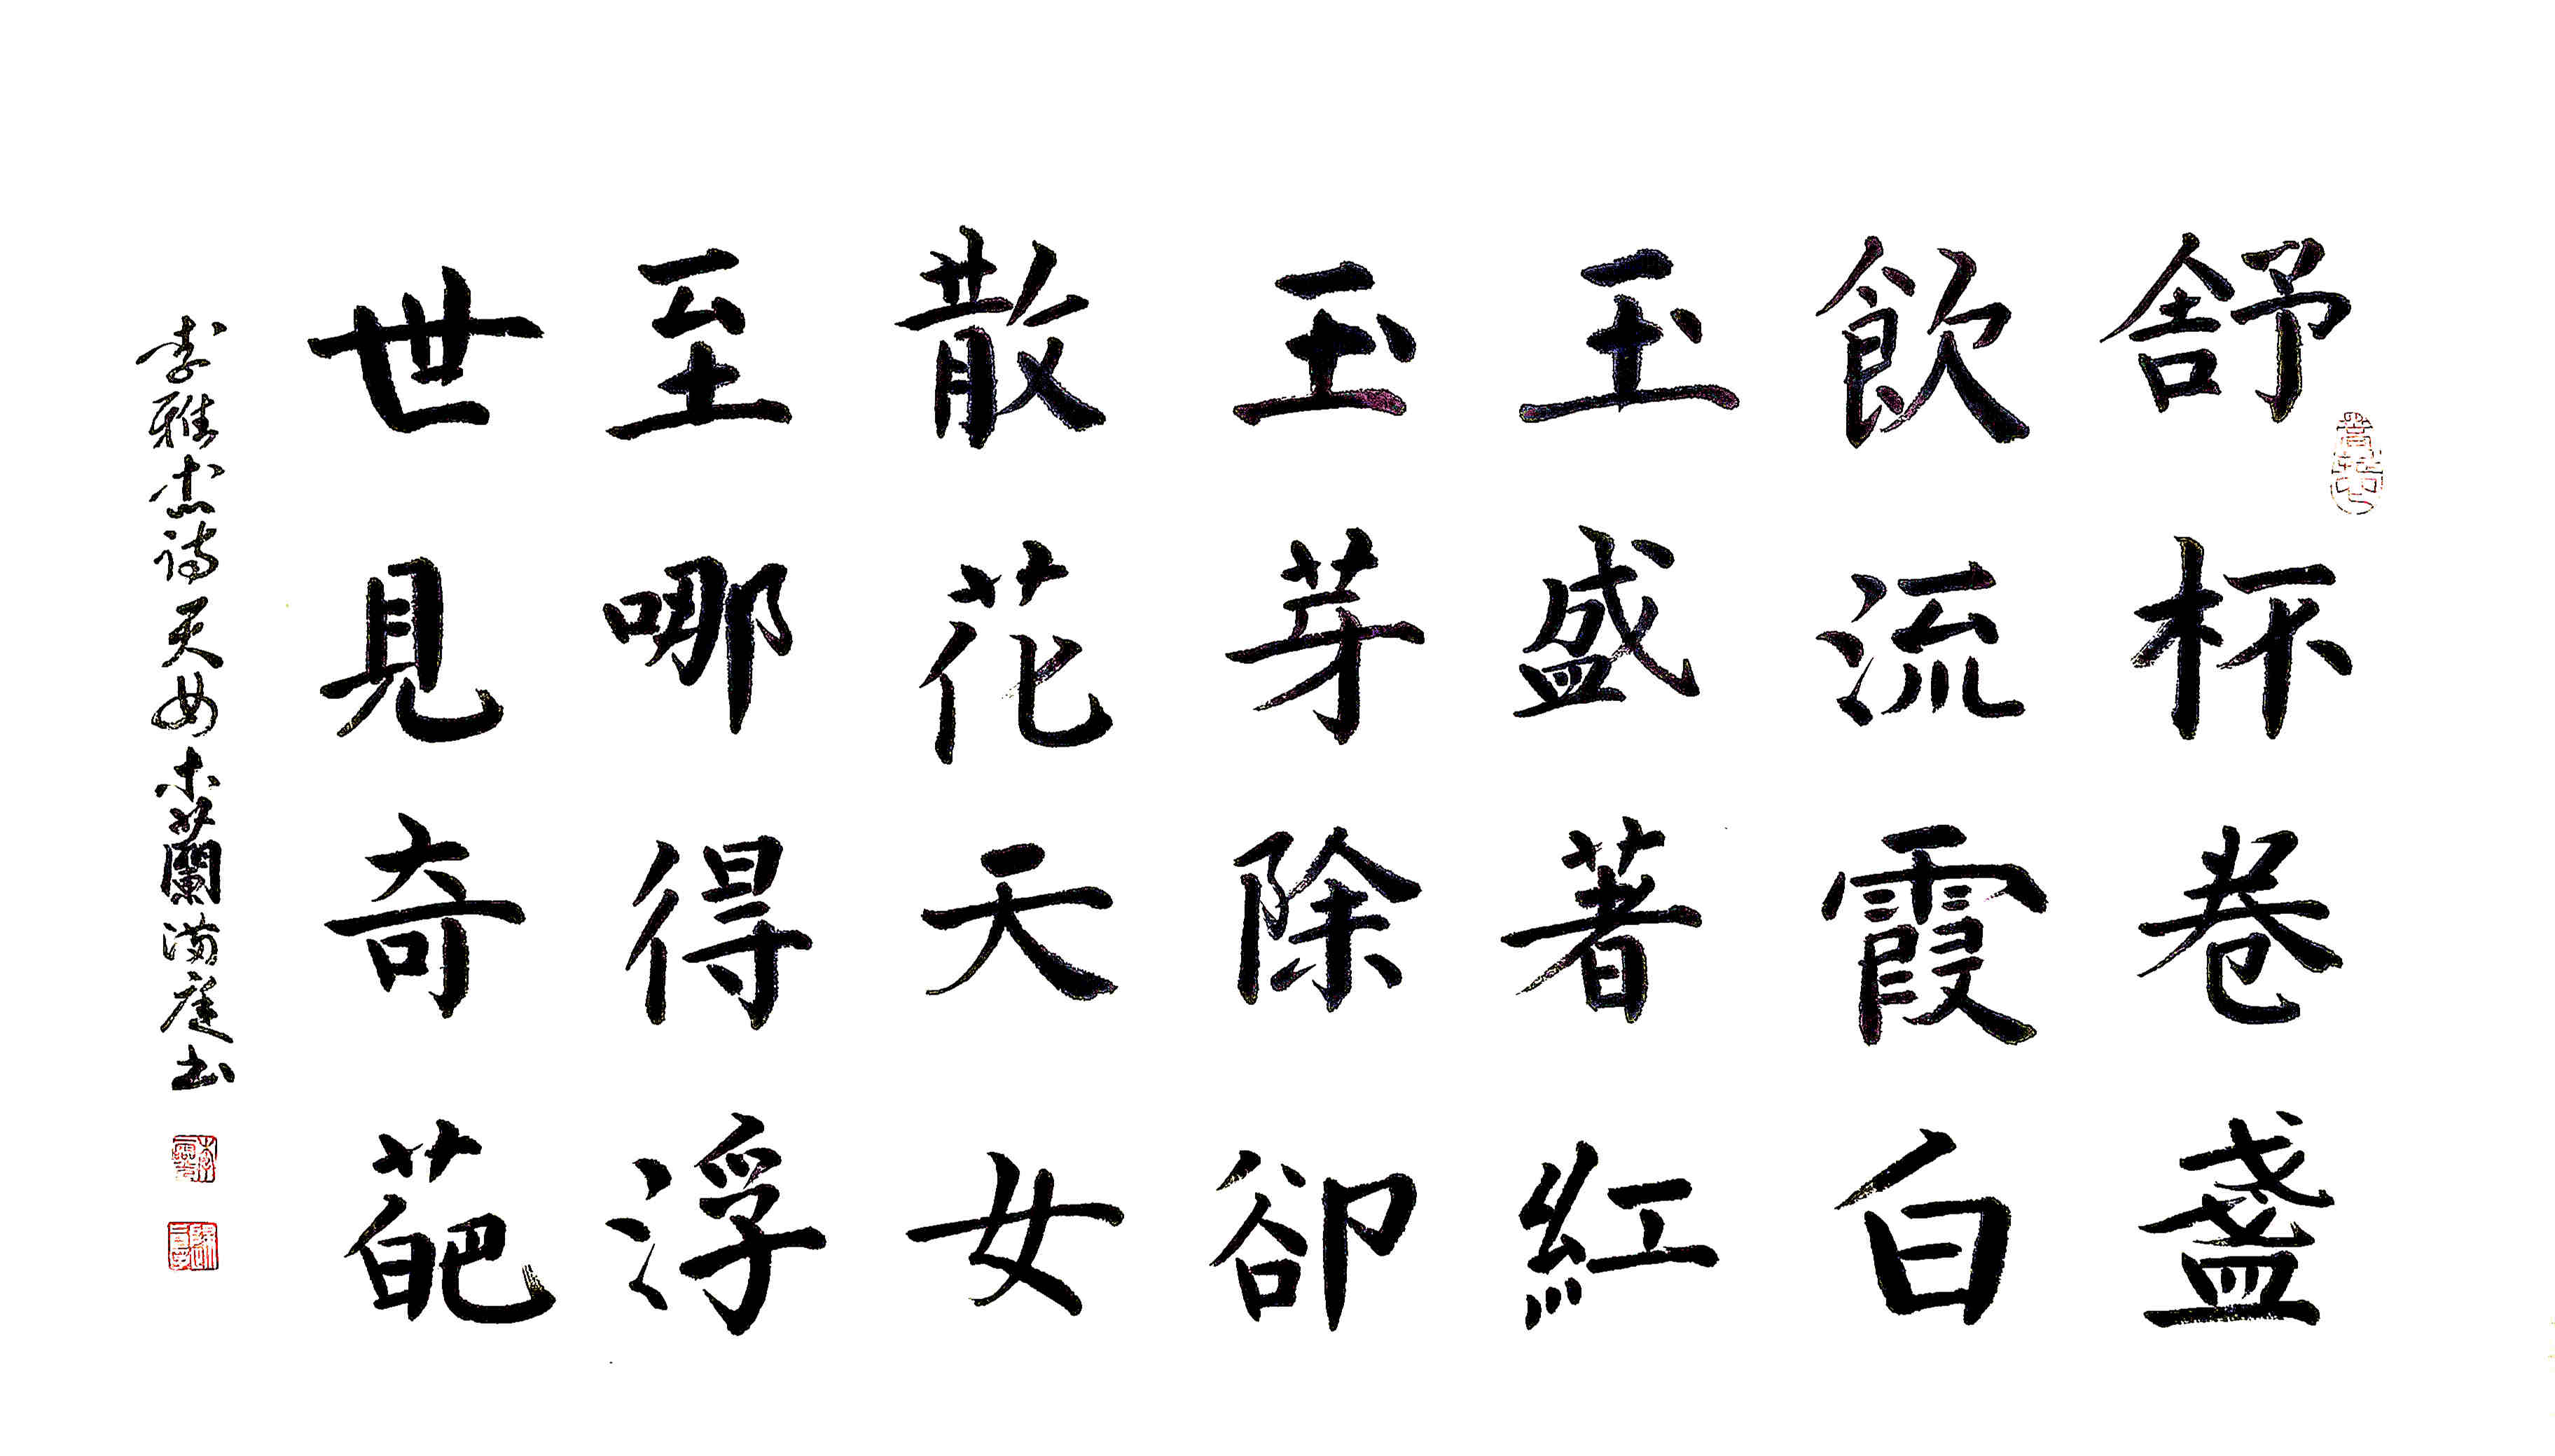 舒杯卷盞
飲流霞白
玉盛著紅
玉芽除卻
散花天女
至哪得浮
世見奇葩
李雅杰詩天女木蘭滿庭書